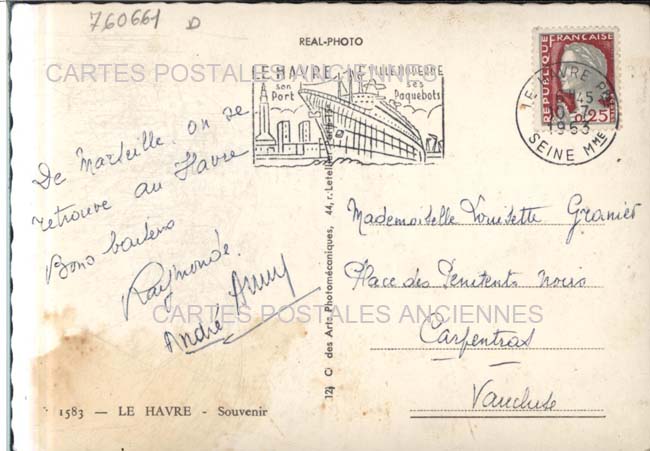 760661 D
REAL-PHOTO
CARTES POSTALES ANCIENNES
LE HAVRE
VILLE MODERNE
son
Port
ses
Paquebots
REPUBLIQUE FRANÇAISE
0,25
LE HAVRE
1963
SEINE MME
De Marseille on se
retrouve au Havre
Bons baisers
Raymonde.
André
Mademoiselle Louisette Granier
Place des Penitents Noirs
Carpentras
Vaucluse
CARTES POSTALES ANCIENNES
des Arts Photomécaniques, 44, r. Letellier Paris-15
1583 — LE HAVRE - Souvenir